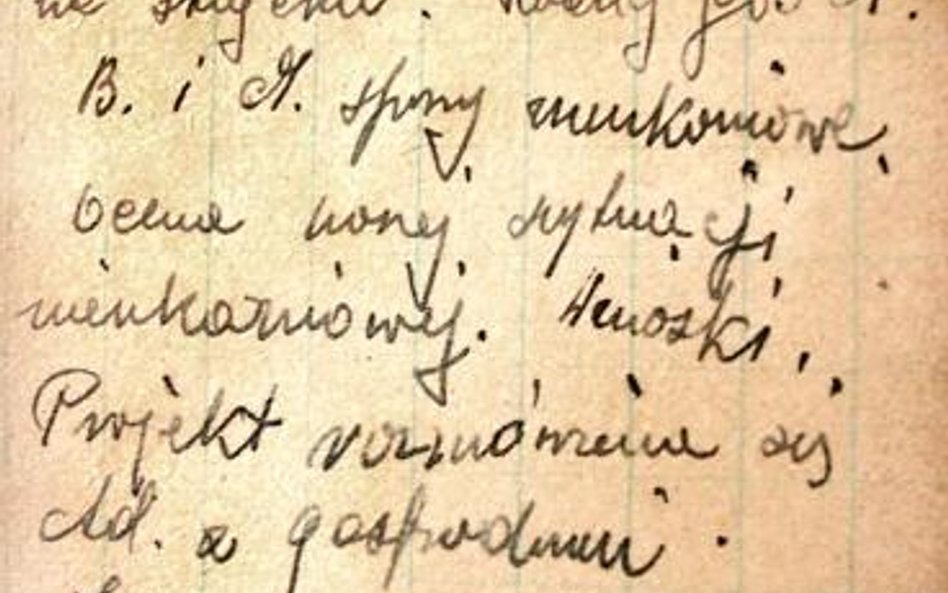 B. i M. spory mieszkaniowe,
ocena nowej sytuacji
mieszkaniowej. Wnioski,
Projekt rozmówienia się
Ad. z gospodynią.